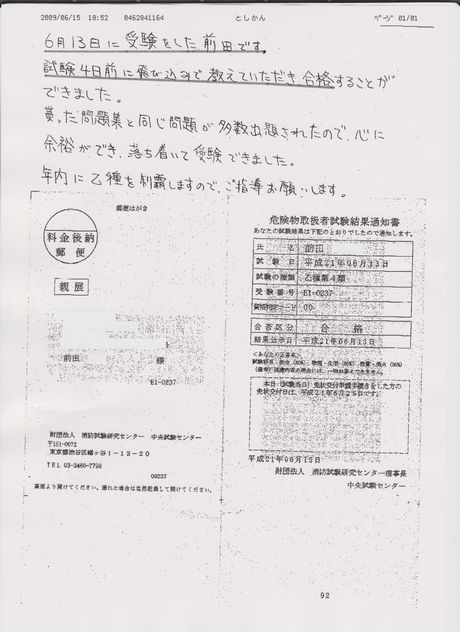 2009/06/15 18:52 0462841164 としかん ページ 01/01
6月13日に受験をした前田です。
試験4日前に飛び込みで教えていただき合格することが
できました。
貰った問題集と同じ問題が多数出題されたので、心に
余裕ができ、落ち着いて受験できました。
年内に乙種を制覇しますので、ご指導お願いします。
郵便はがき
料金後納
郵便
親展
前田 様
E1-0237
財団法人 消防試験研究センター 中央試験センター
〒151-0072
東京都渋谷区幡ヶ谷1-13-20
TEL 03-3460-7798
00237
裏面より開けてください。濡れた場合は自然乾燥して開けてください。
危険物取扱者試験結果通知書
あなたの試験結果は下記のとおりでしたので通知します。
氏名 前田
試験日 平成21年06月13日
試験の種類 乙種第4類
受験番号 E1-0237
資格判定コード 00
合否区分 合格
結果公示日 平成21年06月13日
本日（試験当日）免状交付申請手続きをした方の
免状交付日は、平成21年6月25日です。
平成21年06月13日
財団法人 消防試験研究センター理事長
中央試験センター
92